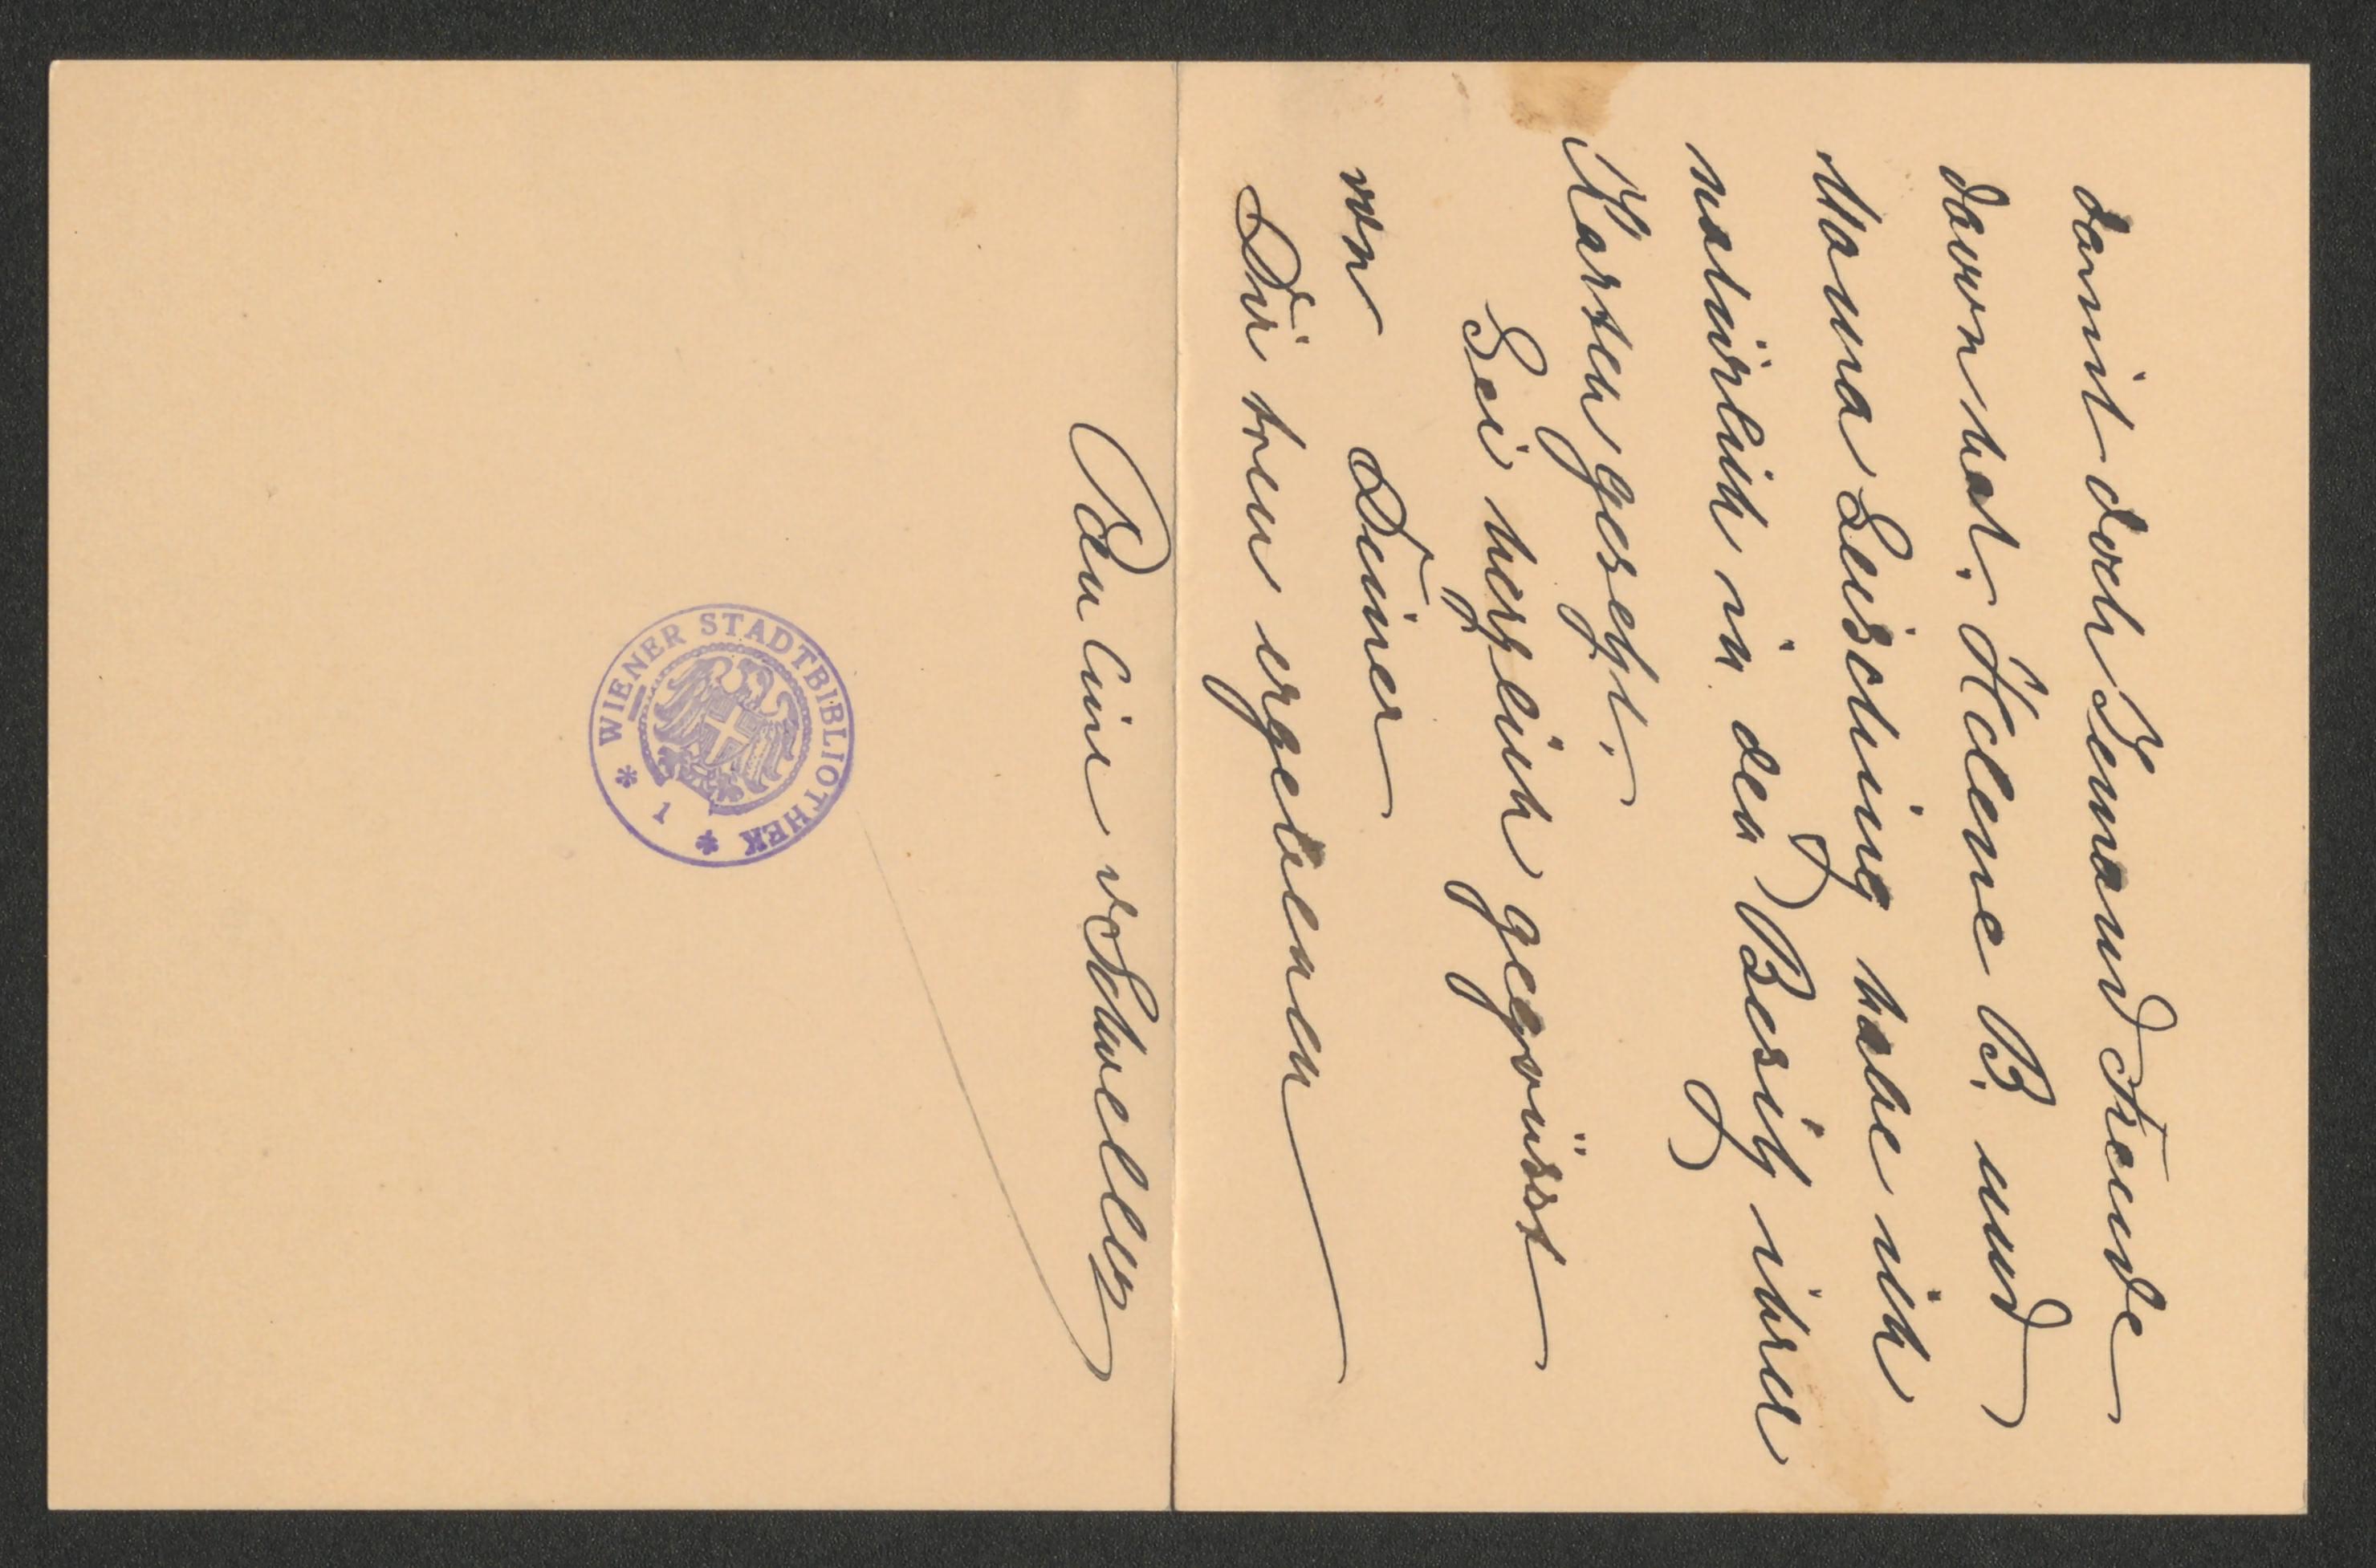 damit doch Jemand Freude
davon hat. Helene B. und
Mama Leisching habe ich
natürlich in den Besitz ihrer
Karten gesetzt.
Sei herzlich gegrüsst
von Deiner
Dir treu ergebenen
Pauline v
WIENER STADTBIBLIOTHEK * 1 *